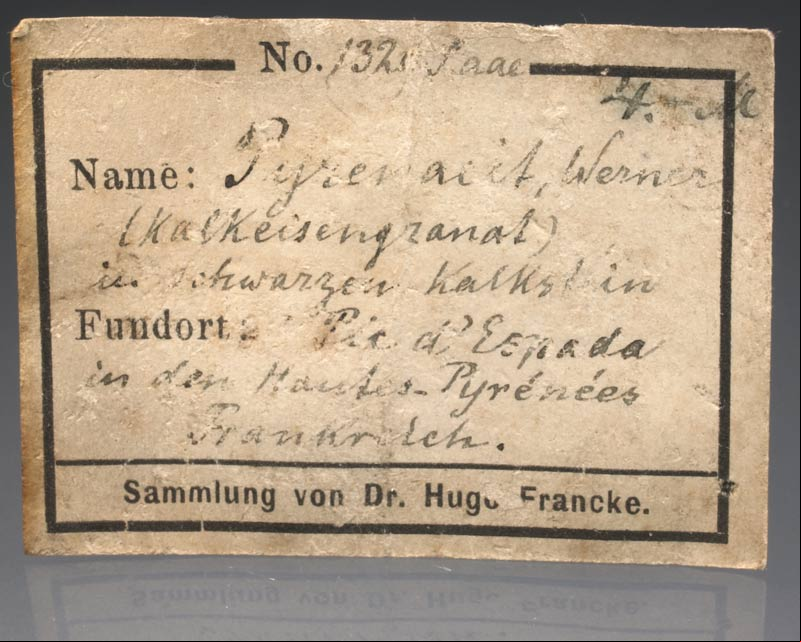 No. 132
4.- M
Name: Pyrenaeit, Werner
(Kalkeisengranat)
in schwarzen Kalkstein
Fundort: Pic d'Espada
in den Hautes-Pyrénées
Frankreich.
Sammlung von Dr. Hugo Francke.